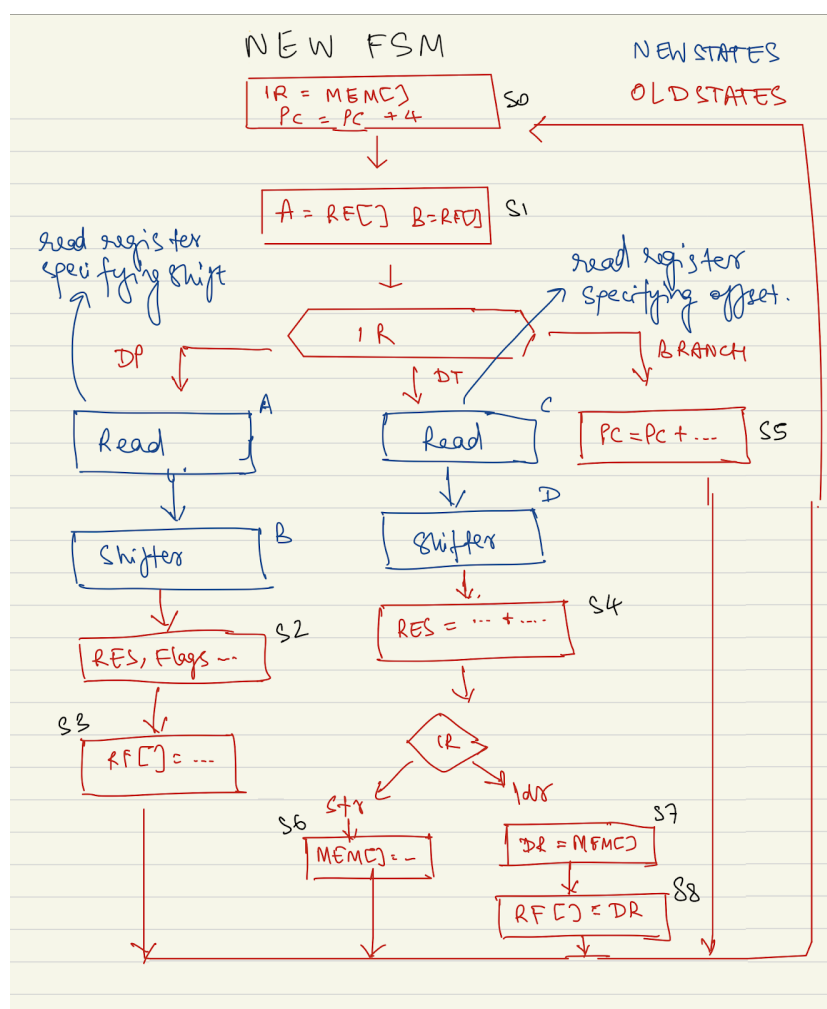 NEW FSM
NEW STATES
OLD STATES
IR = MEM[]
PC = PC + 4
S0
A = RF[] B=RF[]
S1
read register
specifying shift
read register
specifying offset.
IR
DP
DT
BRANCH
A
Read
C
Read
PC=PC+...
S5
B
Shifter
D
Shifter
S2
RES, Flags ...
S4
RES = ... + ....
S3
RF[] = ...
IR
str
ldr
S6
MEM[] = -
S7
DR = MEM[]
S8
RF[] = DR